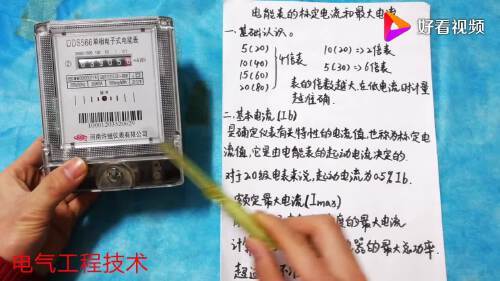 好看视频
DDS566单相电子式电能表
河南许继仪表有限公司
电气工程技术
电能表的标定电流和最大电流
一.基础认识。
5(20)
10(40)
15(60)
20(80)
4倍表
10(20)→2倍表
5(30)→6倍表
表的倍数越大,在低电流时计量
越准确.
二.基本电流(Ib)
是确定仪表有关特性的电流值,也称为标定电
流值,它是由电能表的起动电流决定的.
对于2.0级电表来说,起动电流为0.5%Ib.
额定最大电流(Imax)
的最大电流
计算
的最大总功率.
超